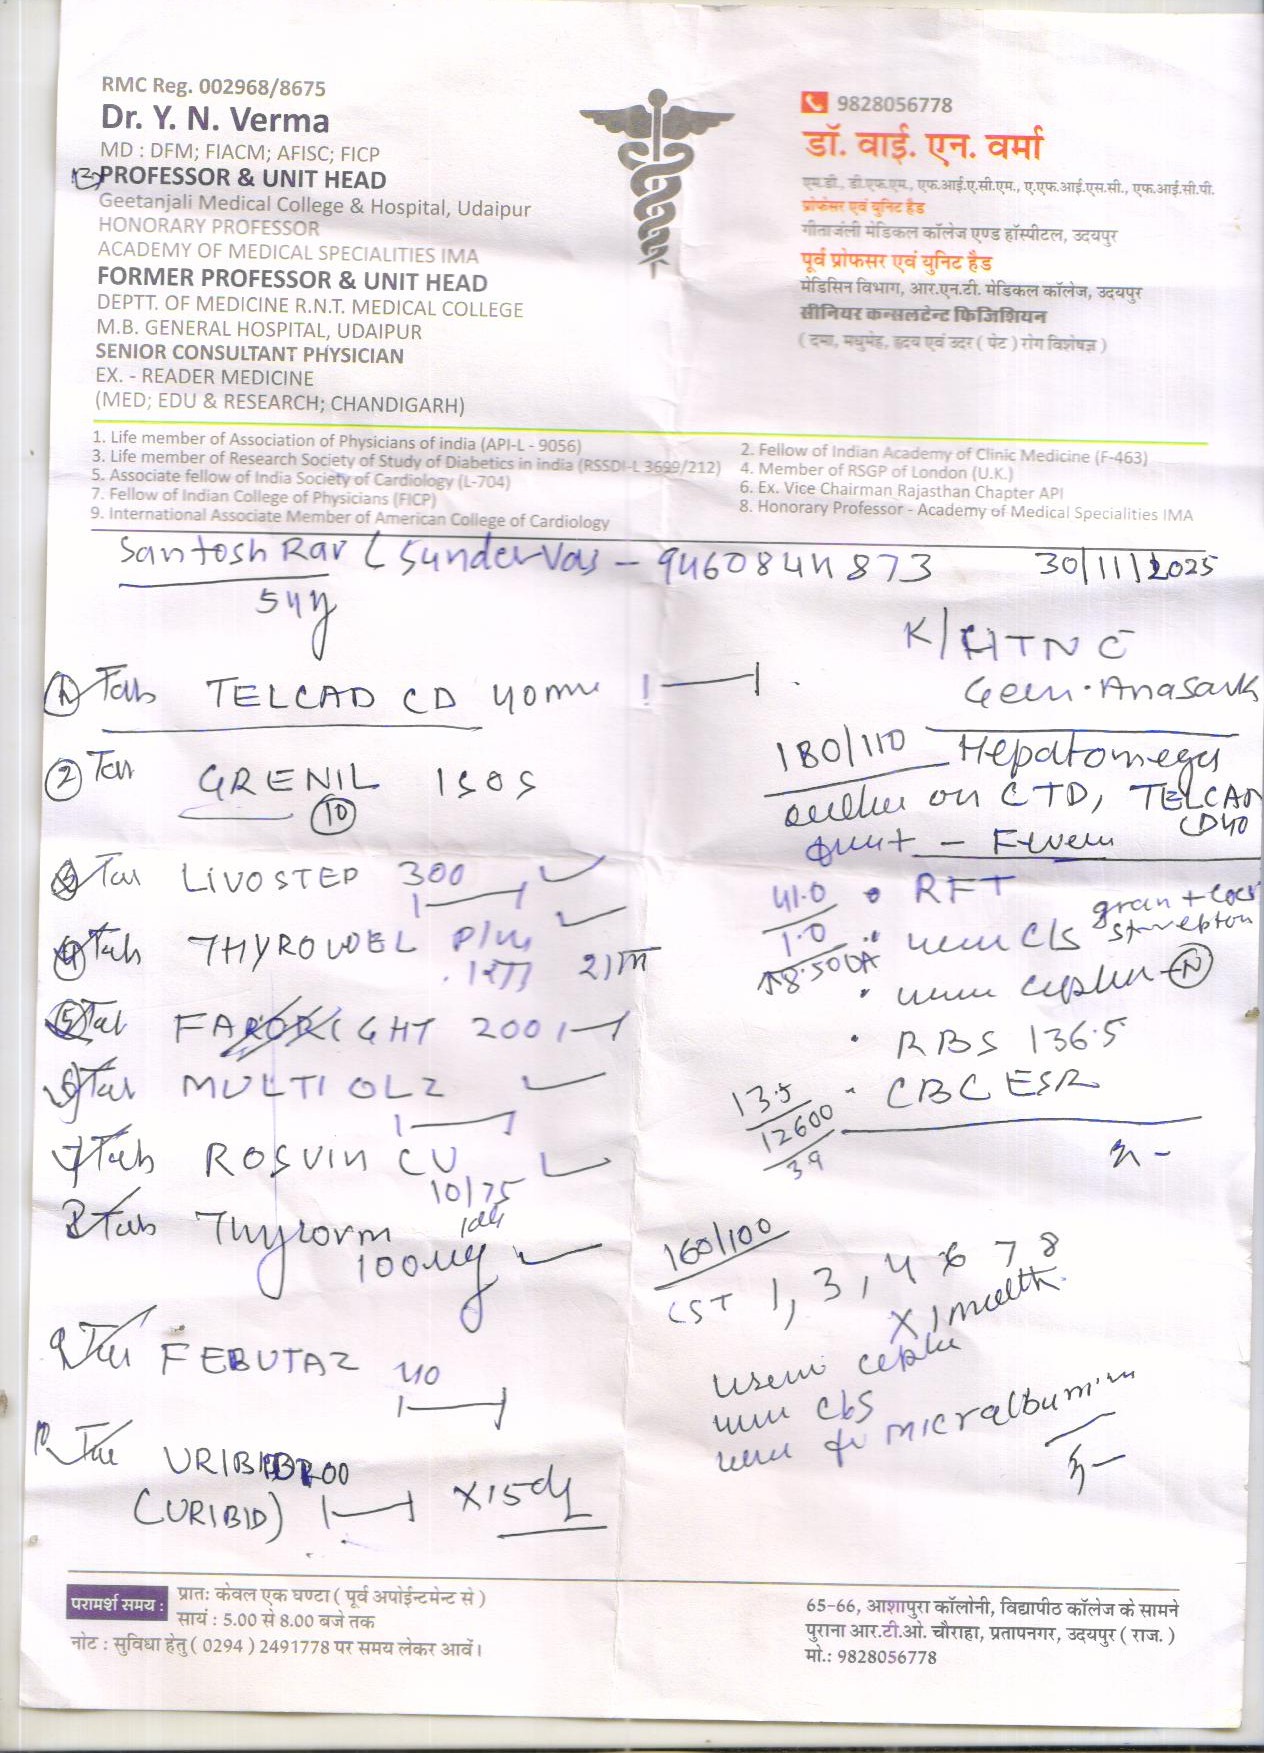 RMC Reg. 002968/8675
Dr. Y. N. Verma
MD : DFM; FIACM; AFISC; FICP
PROFESSOR & UNIT HEAD
Geetanjali Medical College & Hospital, Udaipur
HONORARY PROFESSOR
ACADEMY OF MEDICAL SPECIALITIES IMA
FORMER PROFESSOR & UNIT HEAD
DEPTT. OF MEDICINE R.N.T. MEDICAL COLLEGE
M.B. GENERAL HOSPITAL, UDAIPUR
SENIOR CONSULTANT PHYSICIAN
EX. - READER MEDICINE
(MED; EDU & RESEARCH; CHANDIGARH)
9828056778
डॉ. वाई. एन. वर्मा
एम.डी., डी.एफ.एम., एफ.आई.ए.सी.एम., ए.एफ.आई.एस.सी., एफ.आई.सी.पी.
प्रोफेसर एवं युनिट हैड
गीतांजली मेडिकल कॉलेज एण्ड हॉस्पीटल, उदयपुर
पूर्व प्रोफसर एवं युनिट हैड
मेडिसिन विभाग, आर.एन.टी. मेडिकल कॉलेज, उदयपुर
सीनियर कन्सलटेन्ट फिजिशियन
( दमा, मधुमेह, हृदय एवं उदर ( पेट ) रोग विशेषज्ञ )
1. Life member of Association of Physicians of india (API-L - 9056)
2. Fellow of Indian Academy of Clinic Medicine (F-463)
3. Life member of Research Society of Study of Diabetics in india (RSSDI-L 3699/212)
4. Member of RSGP of London (U.K.)
5. Associate fellow of India Society of Cardiology (L-704)
6. Ex. Vice Chairman Rajasthan Chapter API
7. Fellow of Indian College of Physicians (FICP)
8. Honorary Professor - Academy of Medical Specialities IMA
9. International Associate Member of American College of Cardiology
Santosh Rav ( Sundervas - 9460844873 30/11/2025
54y
K/HTN C
Gen. Anasark
1 Tab TELCAD CD 40
180/110 Hepatomega
2 Tab GRENIL ISOS
10
on CTD, TELCAD
CD40
3 Tab LIVOSTEP 300
41.0 RFT
1.0
↑8.50
C/S gram + Coc
4 Tab THYROWEL Plus
N
5 Tab FARORIGHT 200
RBS 136.5
6 Tab MULTI OLZ
13.5 CBC ESR
12600
39
7 Tab ROSUVIN CV
10/75
8 Tab Thyrorm
100 ug
160/100
CST 1, 3, 4 6 7 8
X 1 month
9 Tab FEBUTAZ 40
C/S
micralbumin
10 Tab URIBID 200
(URIBID) X 15 d
परामर्श समय :
प्रातः केवल एक घण्टा ( पूर्व अपोईन्टमेन्ट से )
सायं : 5.00 से 8.00 बजे तक
नोट : सुविधा हेतु ( 0294 ) 2491778 पर समय लेकर आवें।
65-66, आशापुरा कॉलोनी, विद्यापीठ कॉलेज के सामने
पुराना आर.टी.ओ. चौराहा, प्रतापनगर, उदयपुर ( राज. )
मो.: 9828056778